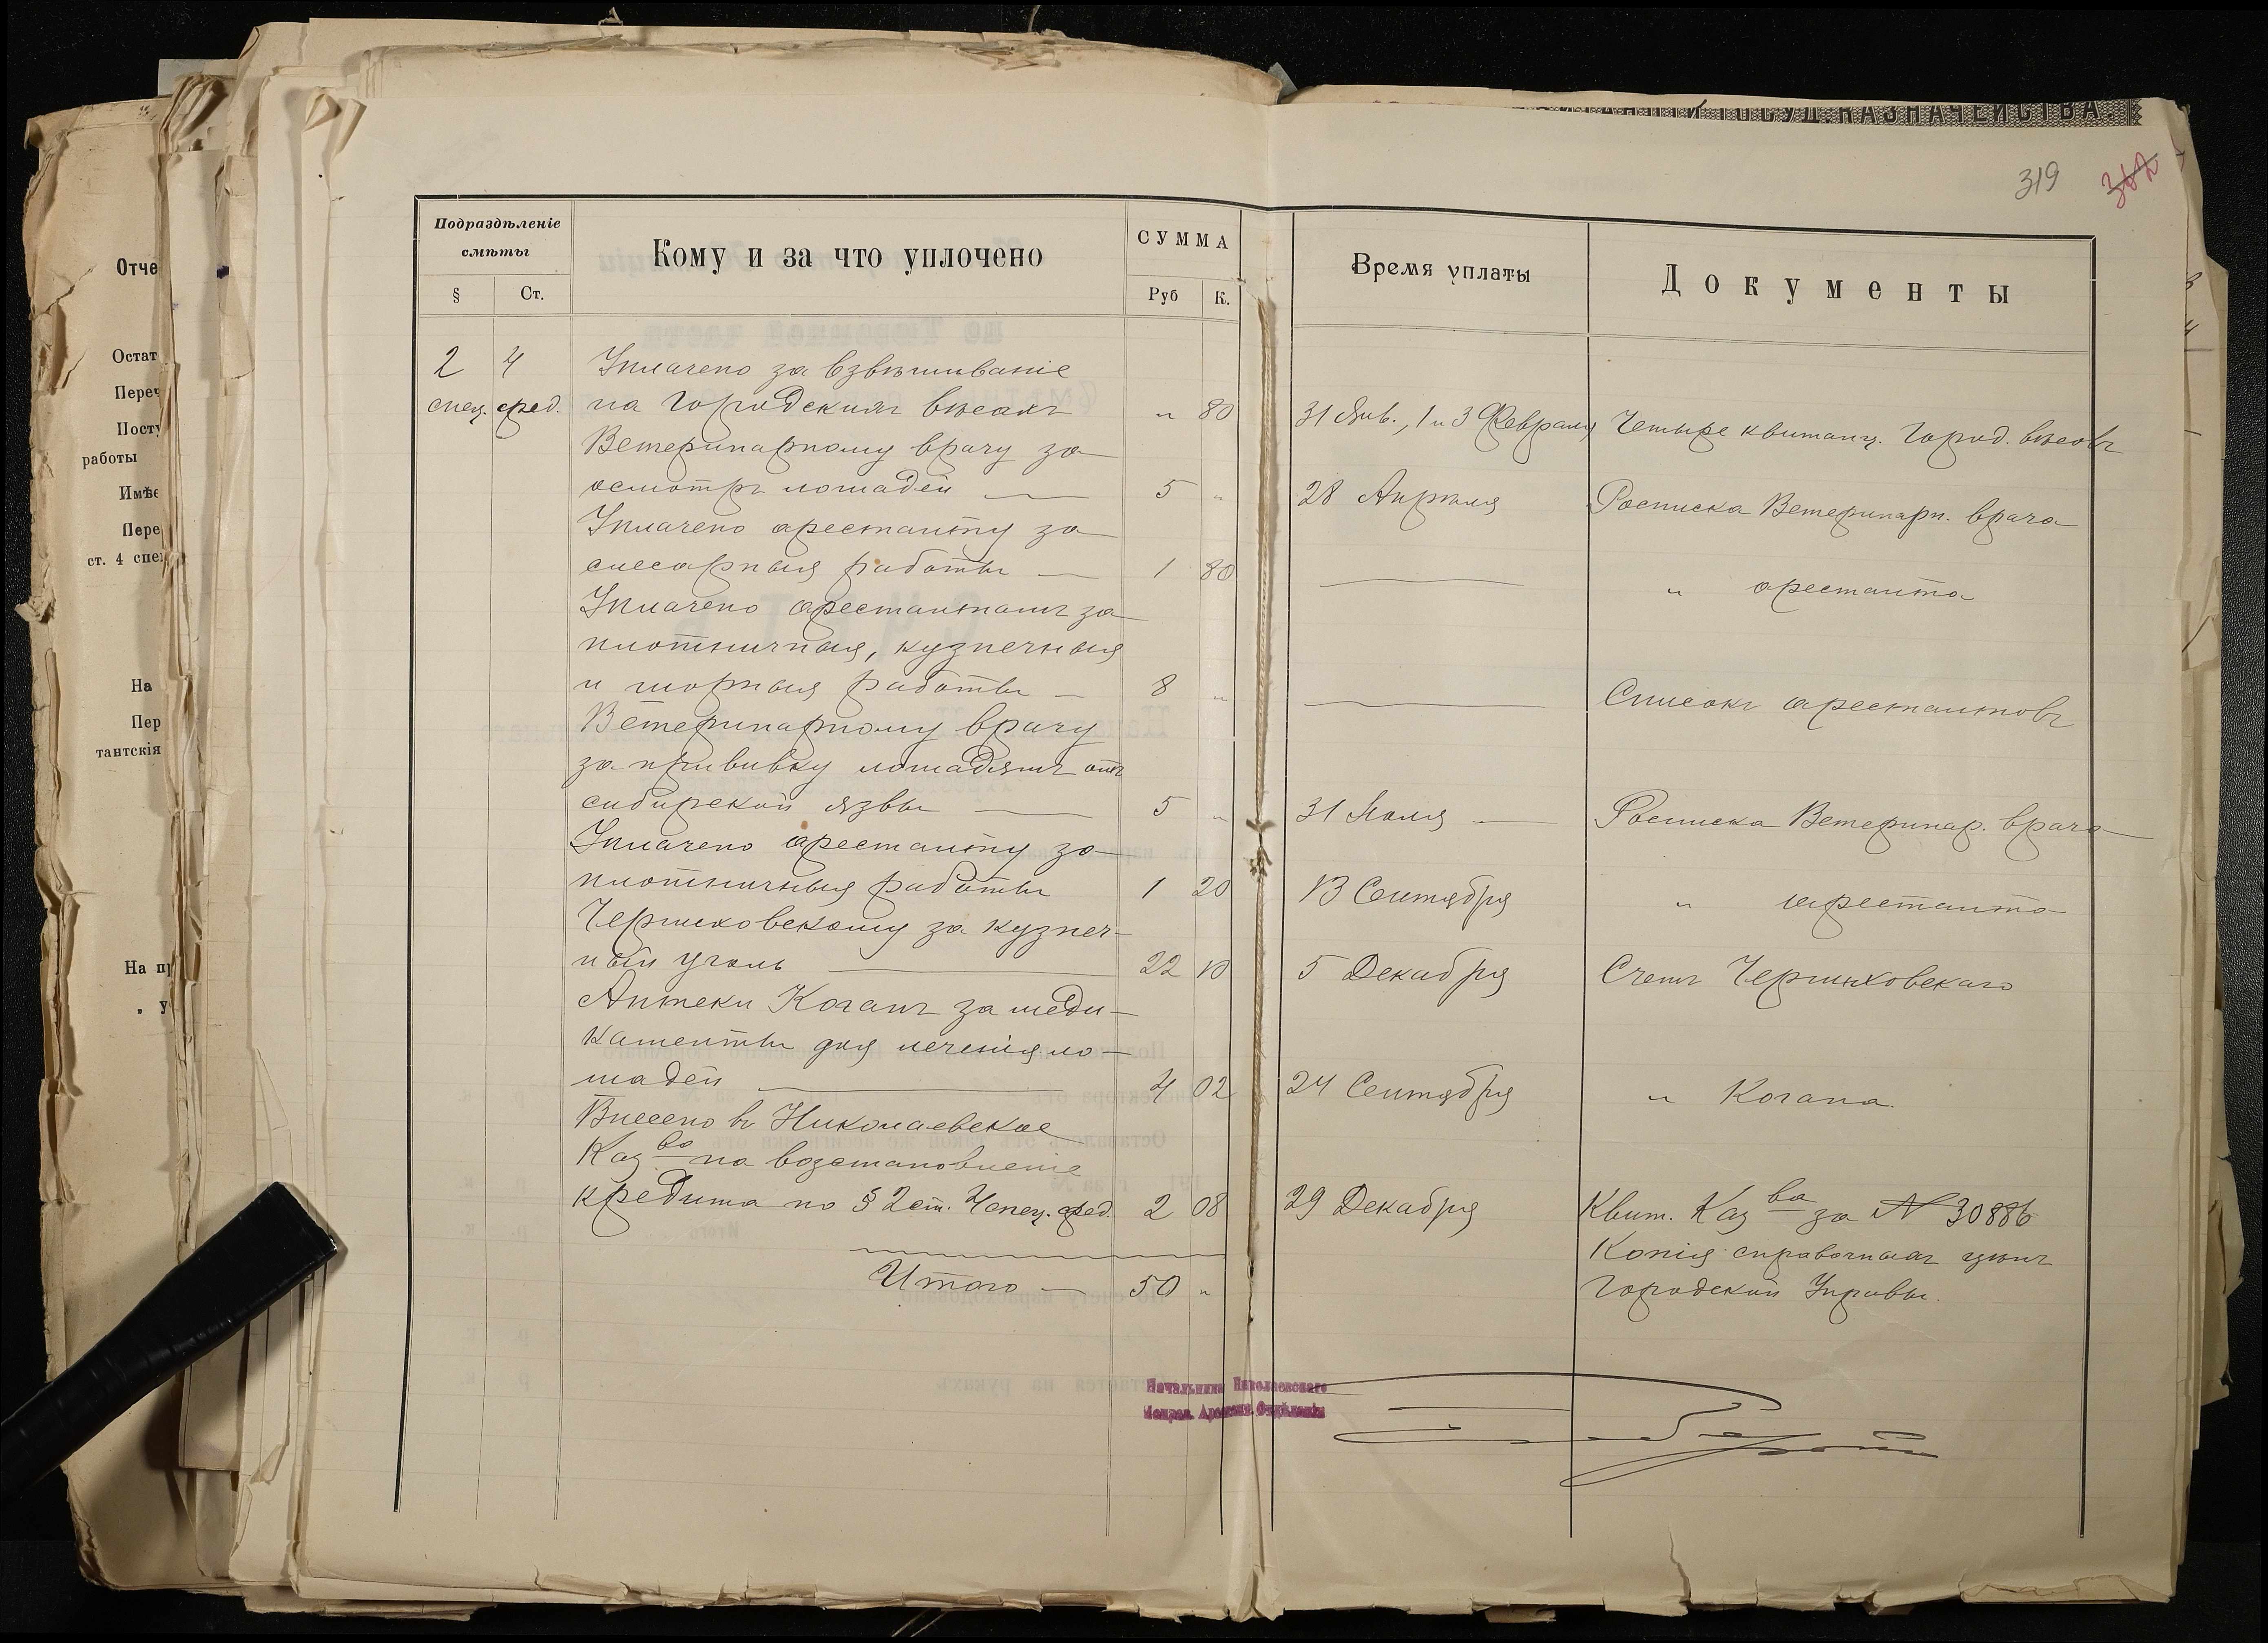 ГОСУД. КАЗНАЧЕЙСТВА.
319
Отче
Остат
Переч
Посту
работы
Имѣе
Пере
ст. 4 спец
На
Пер
тантскія
На пр
Подраздѣленіе
смѣты
Кому и за что уплочено
СУММА
Время уплаты
Документы
§ Ст. Руб К.
2 4 Уплачено за взвѣшиваніе
спец. сред. на Городскихъ вѣсахъ " 80 31 Янв., 1 и 3 Февраля Четыре квитанц. Город. вѣсовъ
Ветеринарному врачу за
осмотръ лошадей — 5 " 28 Апрѣля Росписка Ветеринарн. врача
Уплачено арестанту за
слесарныя работы — 1 80 — " арестанта
Уплачено арестантамъ за
плотничныя, кузнечныя
и шорныя работы — 8 " — Списокъ арестантовъ
Ветеринарному врачу
за прививку лошадямъ отъ
сибирской язвы — 5 " 31 Іюля — Росписка Ветеринар. врача
Уплачено арестанту за
плотничныя работы 1 20 13 Сентября " арестанта
Черниховскому за кузнеч-
ный уголь — 22 10 5 Декабря Счетъ Черниховскаго
Аптеки Коганъ за меди-
каменты для леченія ло-
шадей — 4 02 24 Сентября " Когана.
Внесено въ Николаевское
Каз-во на возстановленіе
кредита по § 2 ст. 4 спец. сред. 2 08 29 Декабря Квит. Каз-ва за № 30886
Копія справочныхъ цѣнъ
Городской Управы.
Итого — 50 "
Начальникъ Николаевскаго
Исправ. Арестант. Отдѣленія